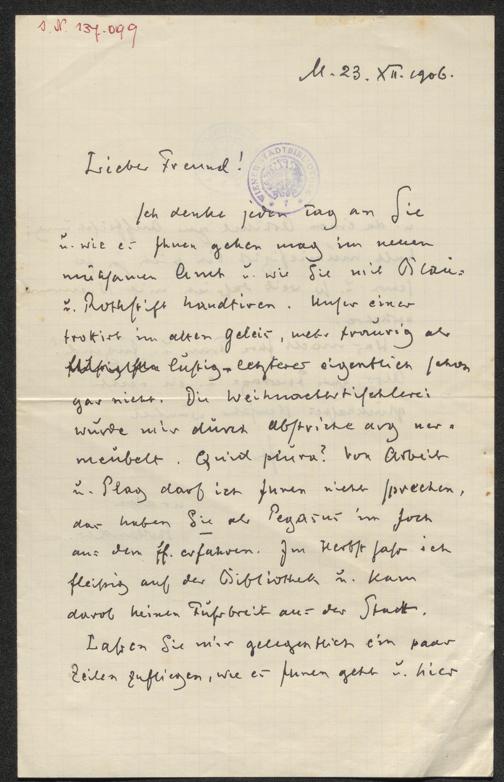 J. N. 137.099
M. 23. XII. 1906.
WIENER STADTBIBLIOTHEK
Lieber Freund!
Ich denke jeden Tag an Sie
u. wie es Ihnen gehen mag im neuen
mühsamen Amt u. wie Sie mit Blau=
u. Rothstift handtiren. Unser einer
trottirt im alten Geleis, mehr traurig als
lustig - letzteres eigentlich schon
gar nicht. Die Weihnachtstischlerei
wurde mir durch Abstriche arg ver=
meubelt. Quid plura? Von Arbeit
u. Plag darf ich Ihnen nicht sprechen,
das haben Sie als Pegasus im Joch
aus dem ff. erfahren. Im Herbst saß ich
fleißig auf der Bibliothek u. kam
darob keinen Fußbreit aus der Stadt.
Laßen Sie mir gelegentlich ein paar
Zeilen zufliegen, wie es Ihnen geht u. hier